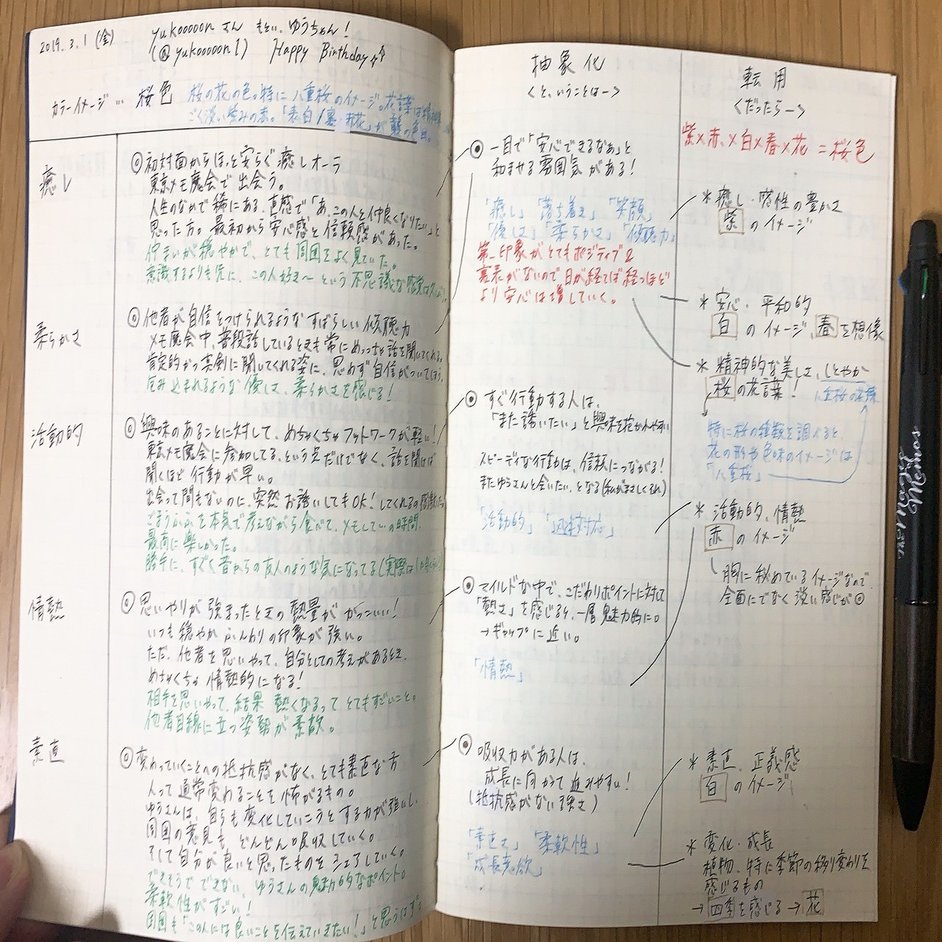 2019.3.1 (金)
yukooooon さん もとい、ゆうちゃん!
(@yukooooon1) Happy Birthday
カラーイメージ … 桜色
桜の花の色。特に八重桜のイメージ。花言葉は
ごく淡い紫みの赤。「表白/裏・赤花」が襲の色目。
癒し
◎初対面からほっと安らぐ癒しオーラ
東京メモ魔会で出会う。
人生のなかで稀にある、直感で「あ、この人と仲良くなりたい」と
思った方。最初から安心感と信頼感があった。
佇まいが穏やかで、とても周囲をよく見ていた。
意識するよりも先に、この人好き〜という不思議な感覚
柔らかさ
◎他者が自信をつけられるようなすばらしい傾聴力
メモ魔会中、普段話しているときも常にめっちゃ話を聞いてくれる。
肯定的かつ真剣に聞いてくれる姿に、思わず自信がついてしまう。
包み込まれるような優しさ、柔らかさを感じる!
活動的
◎興味のあることに対して、めちゃくちゃフットワークが軽い!
東京メモ魔会に参加してる、という点だけでなく、話を聞けば
聞くほど行動が早い。
出会って間もないのに、突然お誘いしてもOK!してくれるの感激
ごはんを本気で考えながら食べて、メモしてーの時間、
最高に楽しかった。
勝手に、すぐ昔からの友人のような気になってる(実際は
情熱
◎思いやりが強まったときの熱量がかっこいい!
いつも穏やかふんわりの印象が強い。
ただ、他者を思いやって、自分としての考えがあるとき、
めちゃくちゃ情熱的になる!
相手を思いやって、結果熱くなるってとてもすごいこと。
他者目線に立つ姿勢が素敵。
素直
◎変わっていくことへの抵抗感がなく、とても素直な方
人って通常変わることを怖がるもの。
ゆうさんは、自らも変化していこうとする力が強いし、
周囲の意見も、どんどん吸収していく。
そして自分が良いと思ったものをシェアしていく。
できそうでできない、ゆうさんの魅力的なポイント。
柔軟性がすごい!
周囲も「この人には良いことを伝えていきたい!」と思うはず
抽象化
<と、いうことは→>
◎一目で「安心できるなぁ」と
和ませる雰囲気がある!
「癒し」「落ち着き」「笑顔」
「優しさ」「柔らかさ」「傾聴力」
第一印象がとてもポジティブ&
裏表がないので日が経てば経つほど
より安心は増していく。
◎すぐ行動する人は、
「また誘いたい」と興味を抱かれやすい
スピーディな行動は、信頼につながる!
またゆうさんと会いたい、となる(私がまさしくそれ)
「活動的」「迅速対応」
◎マイルドな中で、こだわりポイントに対する
「熱さ」を感じると、一層魅力的に。
→ギャップに近い。
「情熱」
◎吸収力がある人は、
成長に向かって進みやすい!
(抵抗感がない強さ)
「素直さ」「柔軟性」
「成長意欲」
転用
<だったら→>
紫×赤、×白×春×花=桜色
*癒し・感性の豊かさ
紫 のイメージ
*安心・平和的
白 のイメージ、春 を想像
*精神的な美しさ、しとやか
桜の花言葉! 八重桜の花言葉
特に桜の種類を調べると
花の形や色味のイメージは
「八重桜」
*活動的、情熱
赤 のイメージ
胸に秘めているイメージなので
全面にでなく淡い感じが◎
*素直、正義感
白 のイメージ
*変化・成長
植物、特に季節の移り変わりを
感じるもの
→四季を感じる→花